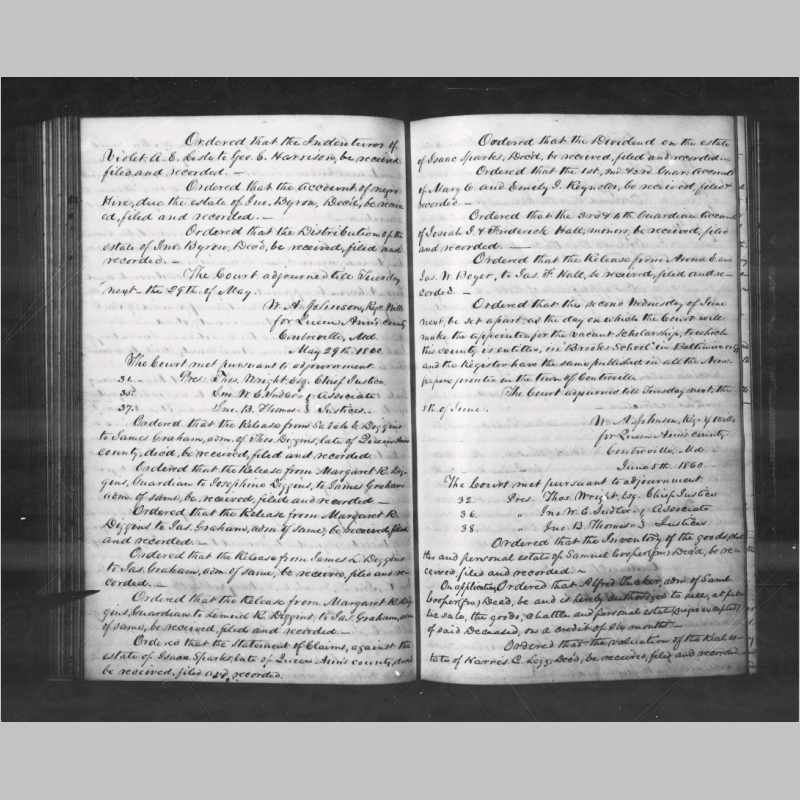 Ordered that the Indentures of
Violet A. E. Leslu to Geo. C. Harrison, be received
filed and recorded. —
Ordered that the Account of negro
Hire, due the estate of Jno. Byron, Decd, be receiv
ed, filed and recorded. —
Ordered that the Distribution of the
estate of Jno. Byron, Decd, be received, filed and
recorded. —
The Court adjourned till Tuesday
next — the 29th of May.
W. A. Johnson, Regr. Wills
for Queen Ann's County
Centreville, Md.
May 29th 1860
The Court met pursuant to adjournment
Pres. Thos. Wright, Esq. Chief Justice
35. Jno. W. E. Sudler } Associate
37. Jno. B. Thomas } Justices.
Ordered that the Release from Sarah E. Diggins
to James Graham, adm. of Thos. Diggins, late of Queen Anns
county, decd, be received, filed and recorded
Ordered that the Release from Margaret R. Dig
gins, Guardian to Josephine Diggins, to James Graham
adm. of same, be received, filed and recorded —
Ordered that the Release from Margaret R.
Diggins to Jas. Graham, adm. of same, be received, filed
and recorded. —
Ordered that the Release from James L. Diggins
to Jas. Graham, adm. of same, be received, filed and re-
corded. —
Ordered that the Release from Margaret R. Dig
gins, Guardian to R. Diggins, to Jas. Graham, adm.
of same, be received, filed and recorded —
Ordered that the Statement of Claims, against the
estate of Isaac Sparks, late of Queen Ann's county, decd
be received, filed and recorded.
Ordered that the Dividend on the estate
of Isaac Sparks, Decd, be received, filed and recorded —
Ordered that the 1st, 2nd & 3rd Guar. Account
of Mary C. and Emily J. Reynolds, be received, filed &
recorded —
Ordered that the 3rd & 4th Guardian Account
of Josiah J. & Frederick Hall, minors, be received, filed
and recorded. —
Ordered that the Release from Anna E. and
Jas. W. Boyer, to Jas. F. Hall, be received, filed and re-
corded. —
Ordered that the second Wednesday of June
next, be set apart, as the day on which the Court will
make the appointm for the vacant Scholarship, to which
the county is entitled, in "Brooks School" in Baltimore city
and the Register have the same published in all the News
papers printed in the town of Centreville
The Court adjourned till Tuesday next, the
5th of June.
W. A. Johnson, Regr. of Wills
for Queen Ann's county
Centreville, Md.
June 5th 1860.
The Court met pursuant to adjournment
32. Pres. Thos. Wright, Esq. Chief Justice
36. " Jno. W. E. Sudler } Associate
38. " Jno. B. Thomas } Justices
Ordered that the Inventory of the goods, chat
tles and personal estate of Samuel Cooper (fn) Decd, be re-
ceived, filed and recorded —
On application, Ordered that Alfred Tucker, adm. of Saml.
Cooper (fn) Decd, be and is hereby authorized to sell, at pub
lic sale, the goods, chattles and personal estate (negroes excepted)
of said Deceased, on a credit of six months —
Ordered that the valuation of the Real es-
tate of Harris C. Legg, Decd, be received, filed and recorded